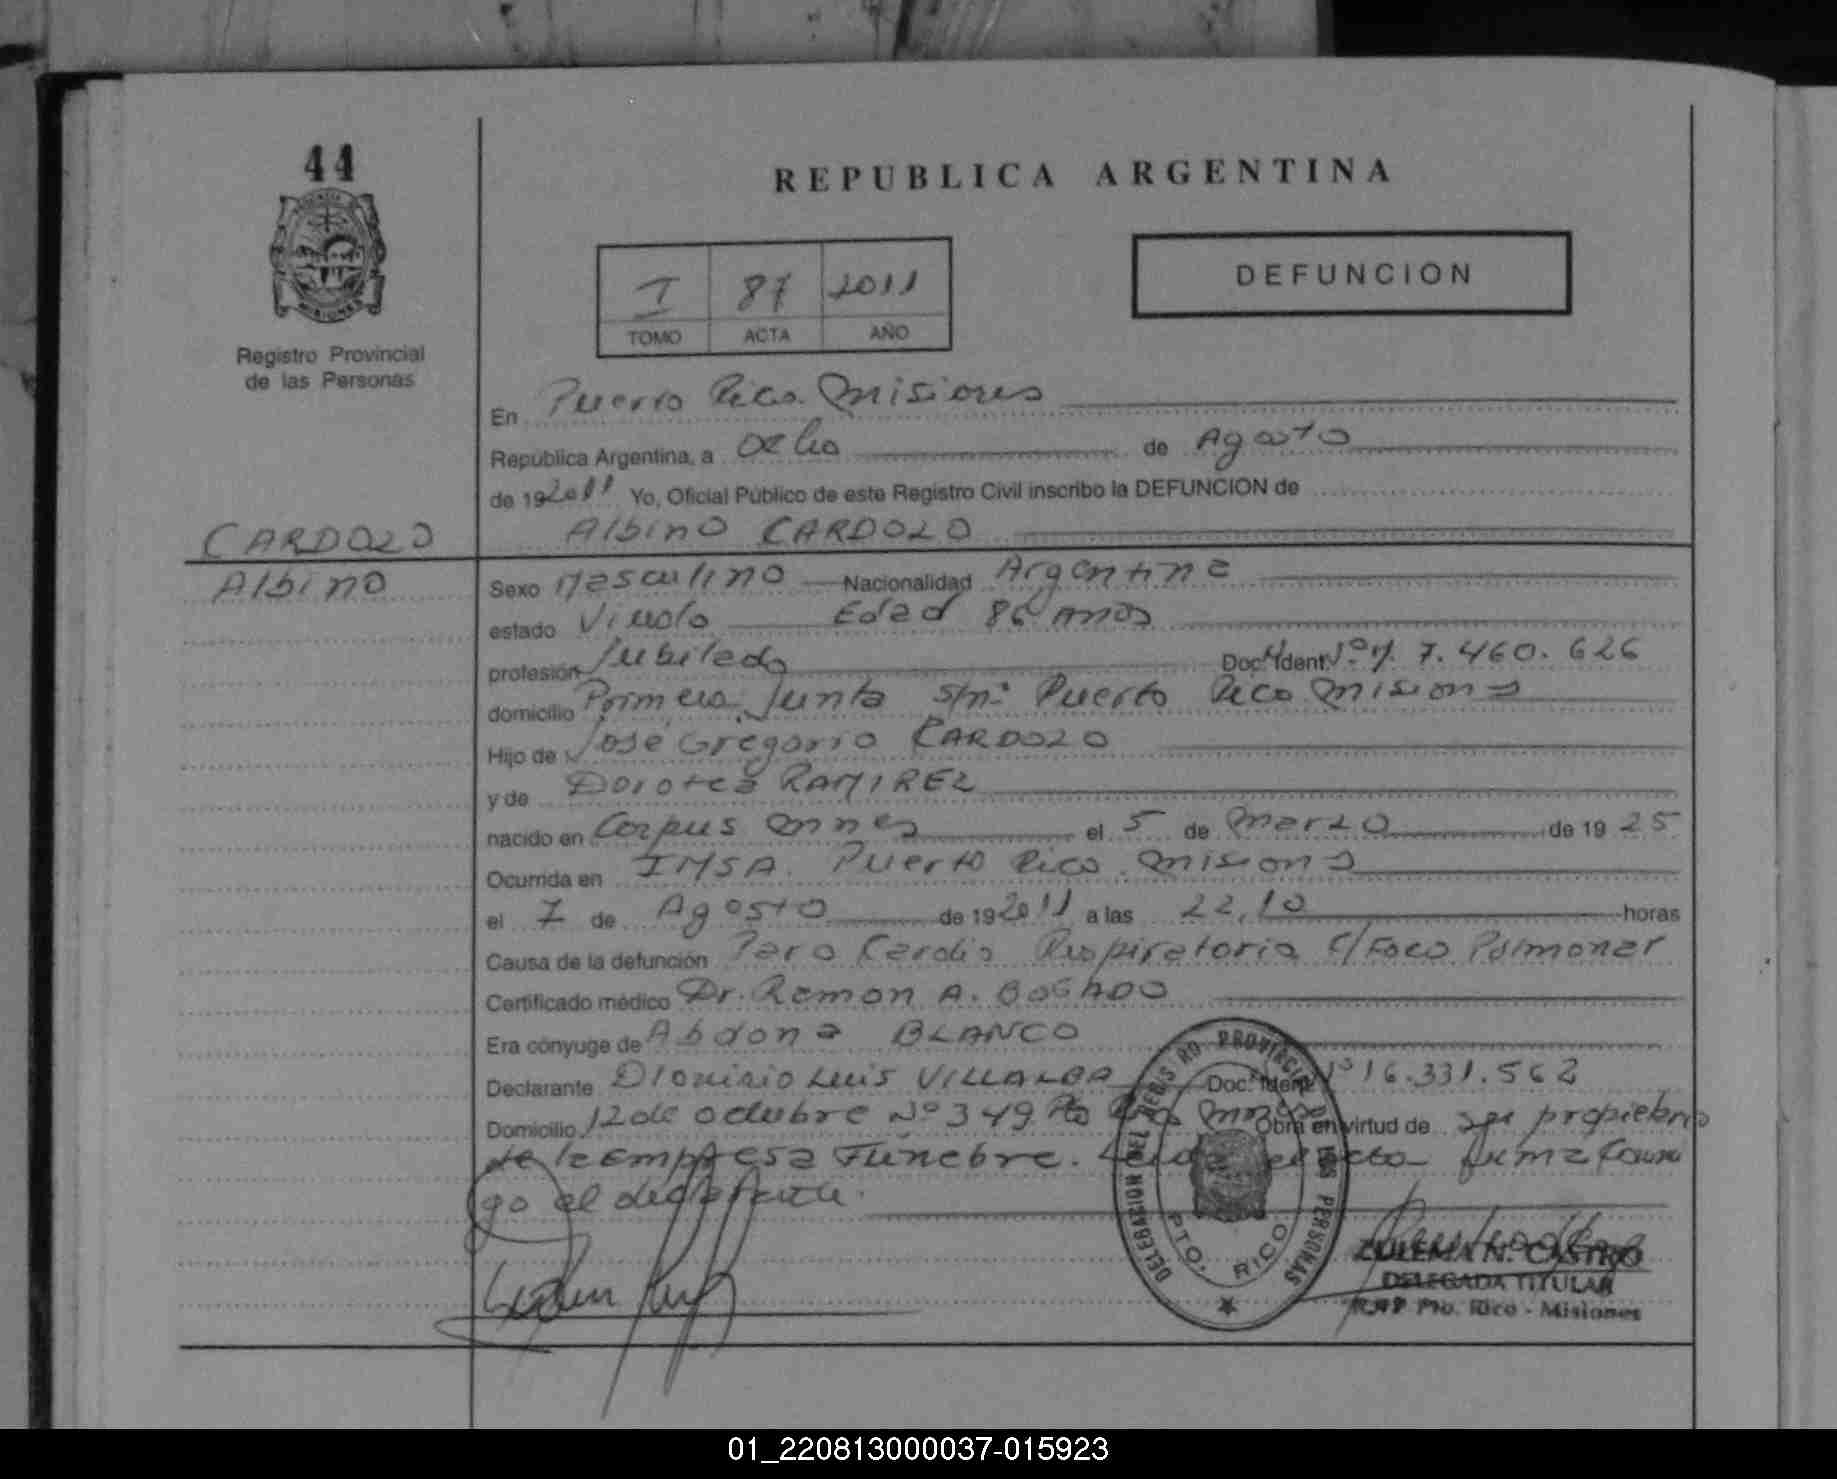 44
REPUBLICA ARGENTINA
MISIONES
I 87 2011
TOMO ACTA AÑO
DEFUNCION
Registro Provincial
de las Personas
En Puerto Rico. Misiones
República Argentina, a ocho de Agosto
de 192011 Yo, Oficial Público de este Registro Civil inscribo la DEFUNCION de
CARDOZO Albino CARDOZO
Albino
Sexo Masculino Nacionalidad Argentina
estado Viudo Edad 86 años
profesión Jubilado Doc. Ident Nº M. 7.460.626
domicilio Primera Junta s/nº Puerto Rico Misiones
Hijo de José Gregorio CARDOZO
y de Dorotea RAMIREZ
nacido en Corpus Mnes el 5 de Marzo de 19 25
Ocurrida en IMSA. Puerto Rico. Misiones
el 7 de Agosto de 192011 a las 22,10 horas
Causa de la defunción Paro Cardio Respiratorio c/Foco Pulmonar
Certificado médico Dr. Ramon A. BOGADO
Era cónyuge de Abdona BLANCO
Declarante Dionisio Luis VILLALBA Doc. Ident Nº 16.331.562
Domicilio 12 de octubre Nº 349 Pto Rico Mnes Obra en virtud de ser propietario
de la Empresa Fúnebre. Leida el acta firma conmi
go el declarante.
DELEGACION DEL REGISTRO PROVINCIAL DE LAS PERSONAS
PTO. RICO
ZULEMA N. CASTRO
DELEGADA TITULAR
R.P.P Pto. Rico - Misiones
01_220813000037-015923